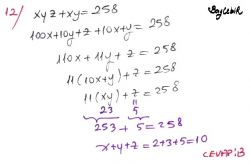 12/ xyz + xy = 258
100x + 10y + z + 10x + y = 258
110x + 11y + z = 258
11(10x + y) + z = 258
11(xy) + z = 258
23 5
253 + 5 = 258
x + y + z = 2 + 3 + 5 = 10
CEVAP: B